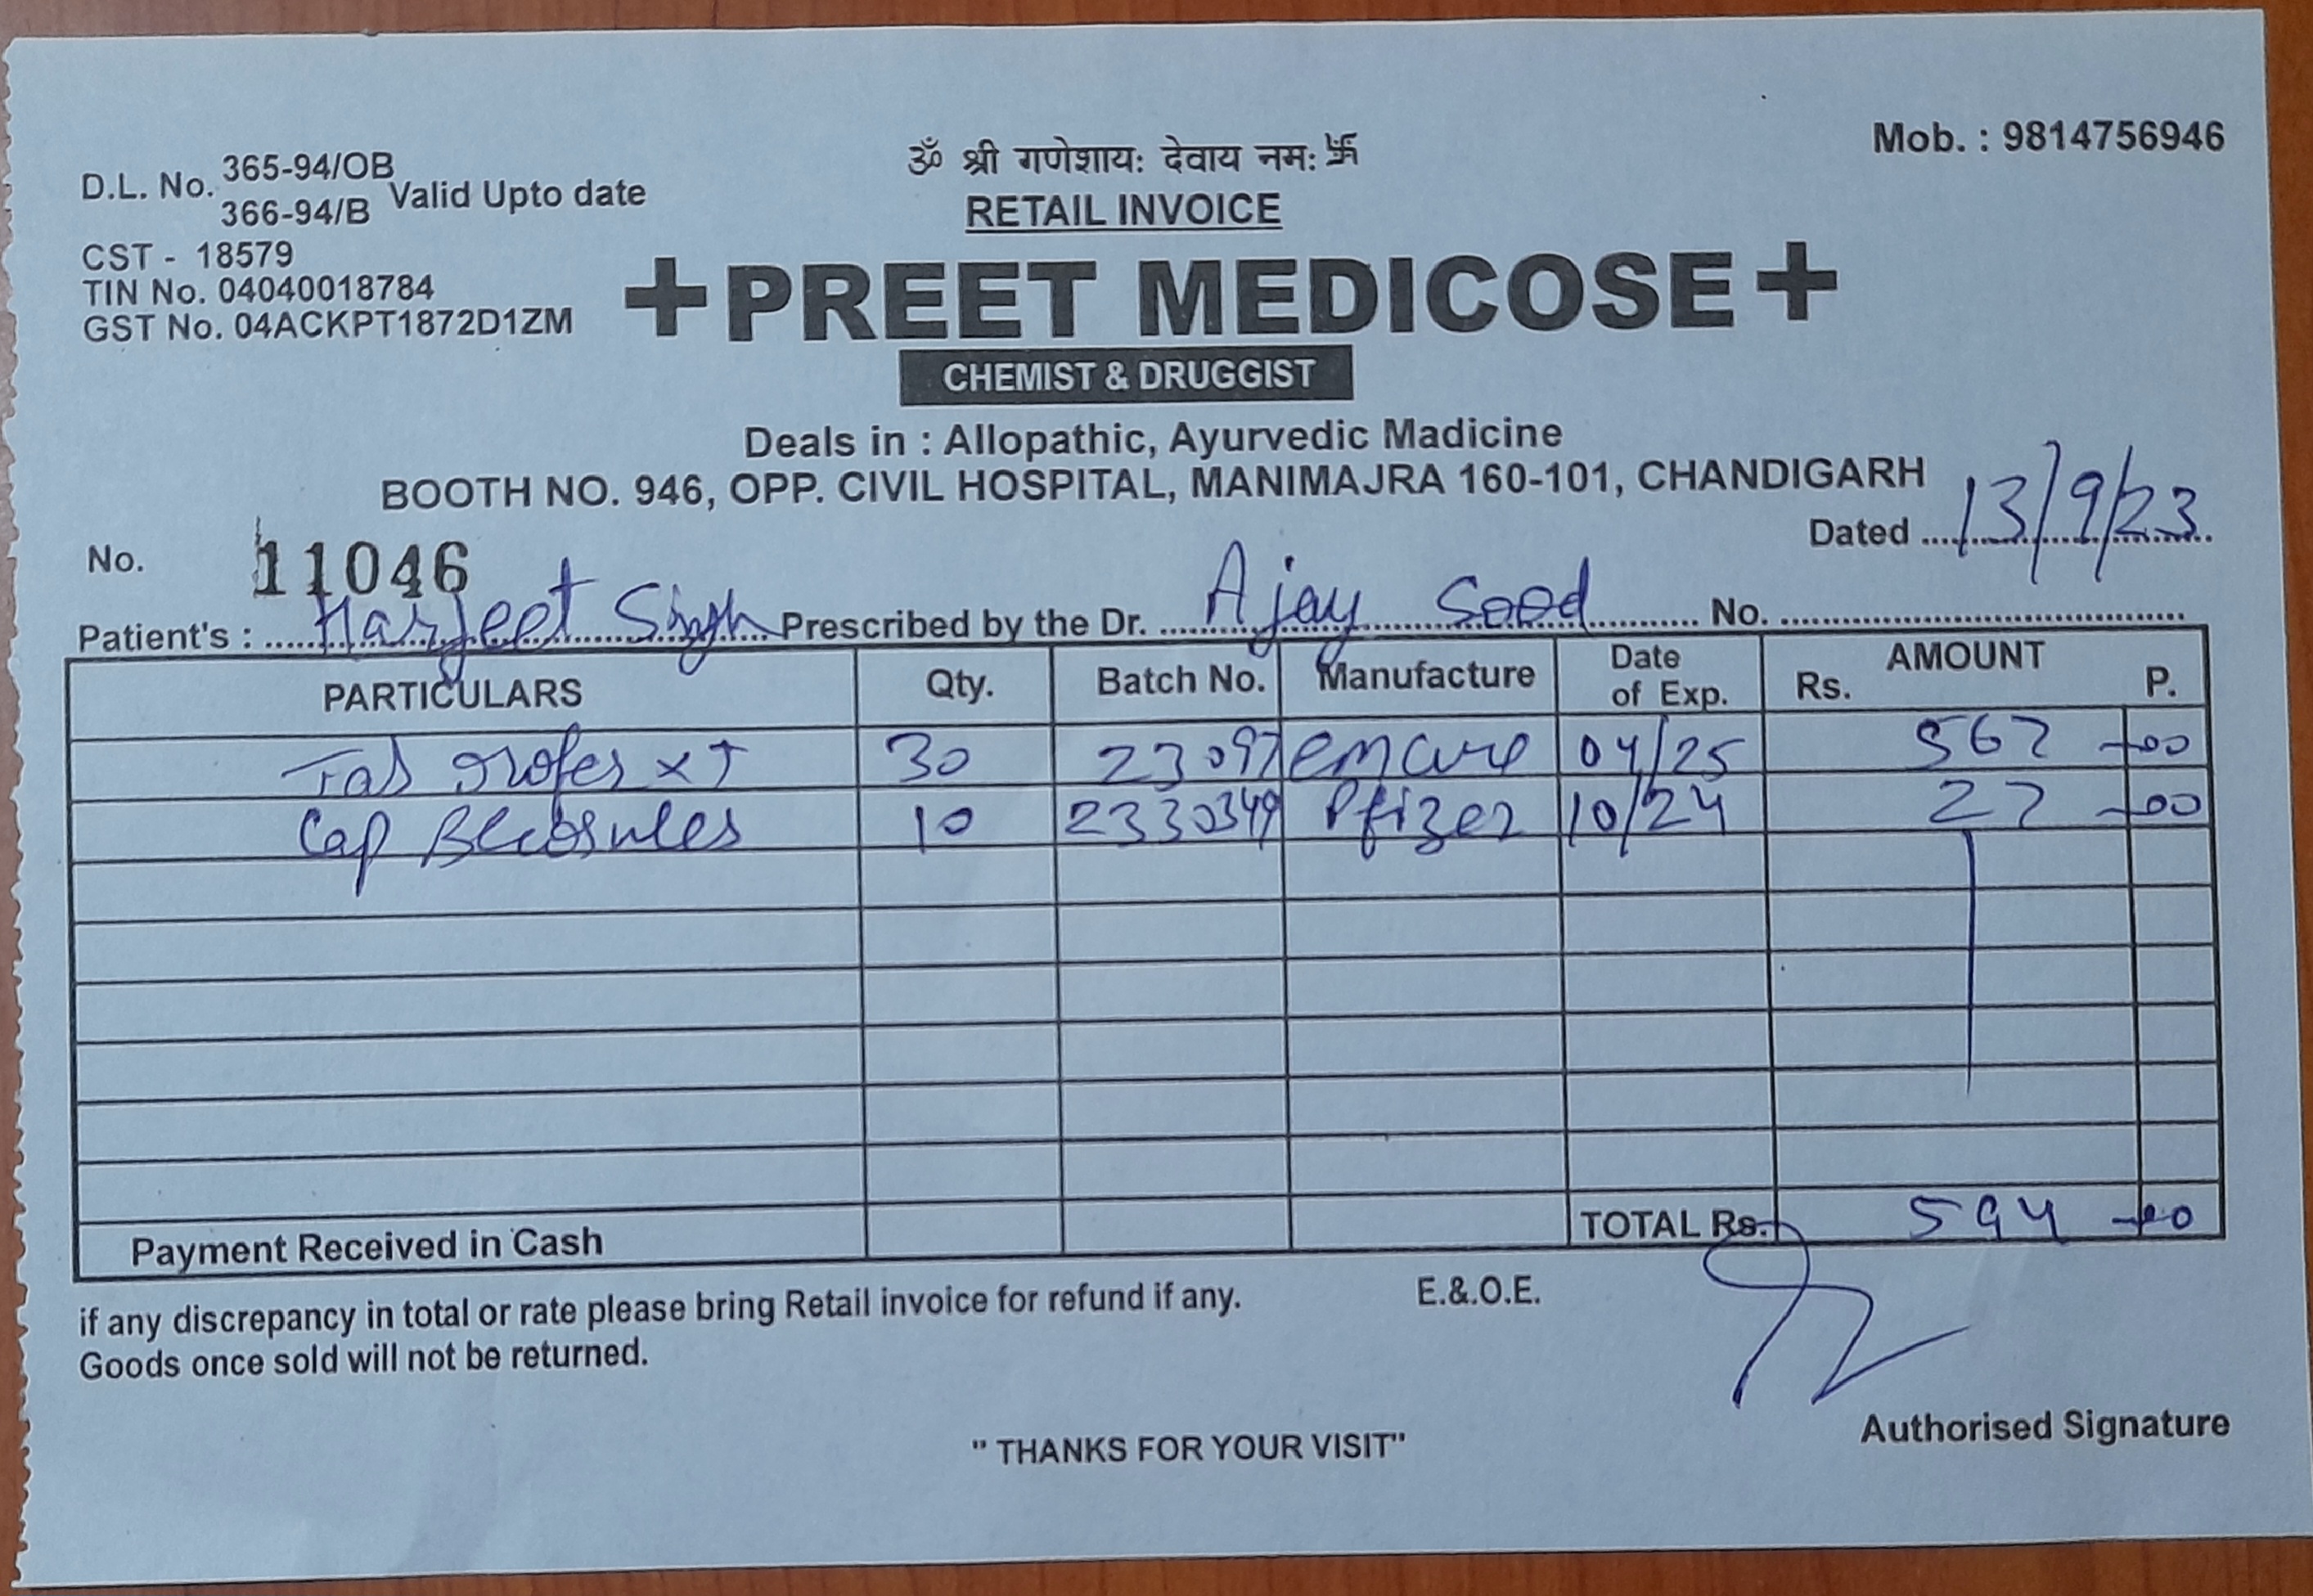 ॐ श्री गणेशायः देवाय नमः 卐
Mob. : 9814756946
D.L. No. 365-94/OB
366-94/B Valid Upto date
CST - 18579
TIN No. 04040018784
GST No. 04ACKPT1872D1ZM
RETAIL INVOICE
+PREET MEDICOSE+
CHEMIST & DRUGGIST
Deals in : Allopathic, Ayurvedic Madicine
BOOTH NO. 946, OPP. CIVIL HOSPITAL, MANIMAJRA 160-101, CHANDIGARH
No. 11046 Dated 13/9/23
Patient's : Harjeet Singh Prescribed by the Dr. Ajay Sood No.
PARTICULARS Qty. Batch No. Manufacture Date of Exp. AMOUNT Rs. P.
Tab orofer XT 30 23097 emcure 04/25 567 -00
Cap Becosules 10 2330349 Pfizer 10/24 27 -00
Payment Received in Cash TOTAL Rs. 594 -00
if any discrepancy in total or rate please bring Retail invoice for refund if any. E.&.O.E.
Goods once sold will not be returned.
Authorised Signature
" THANKS FOR YOUR VISIT"